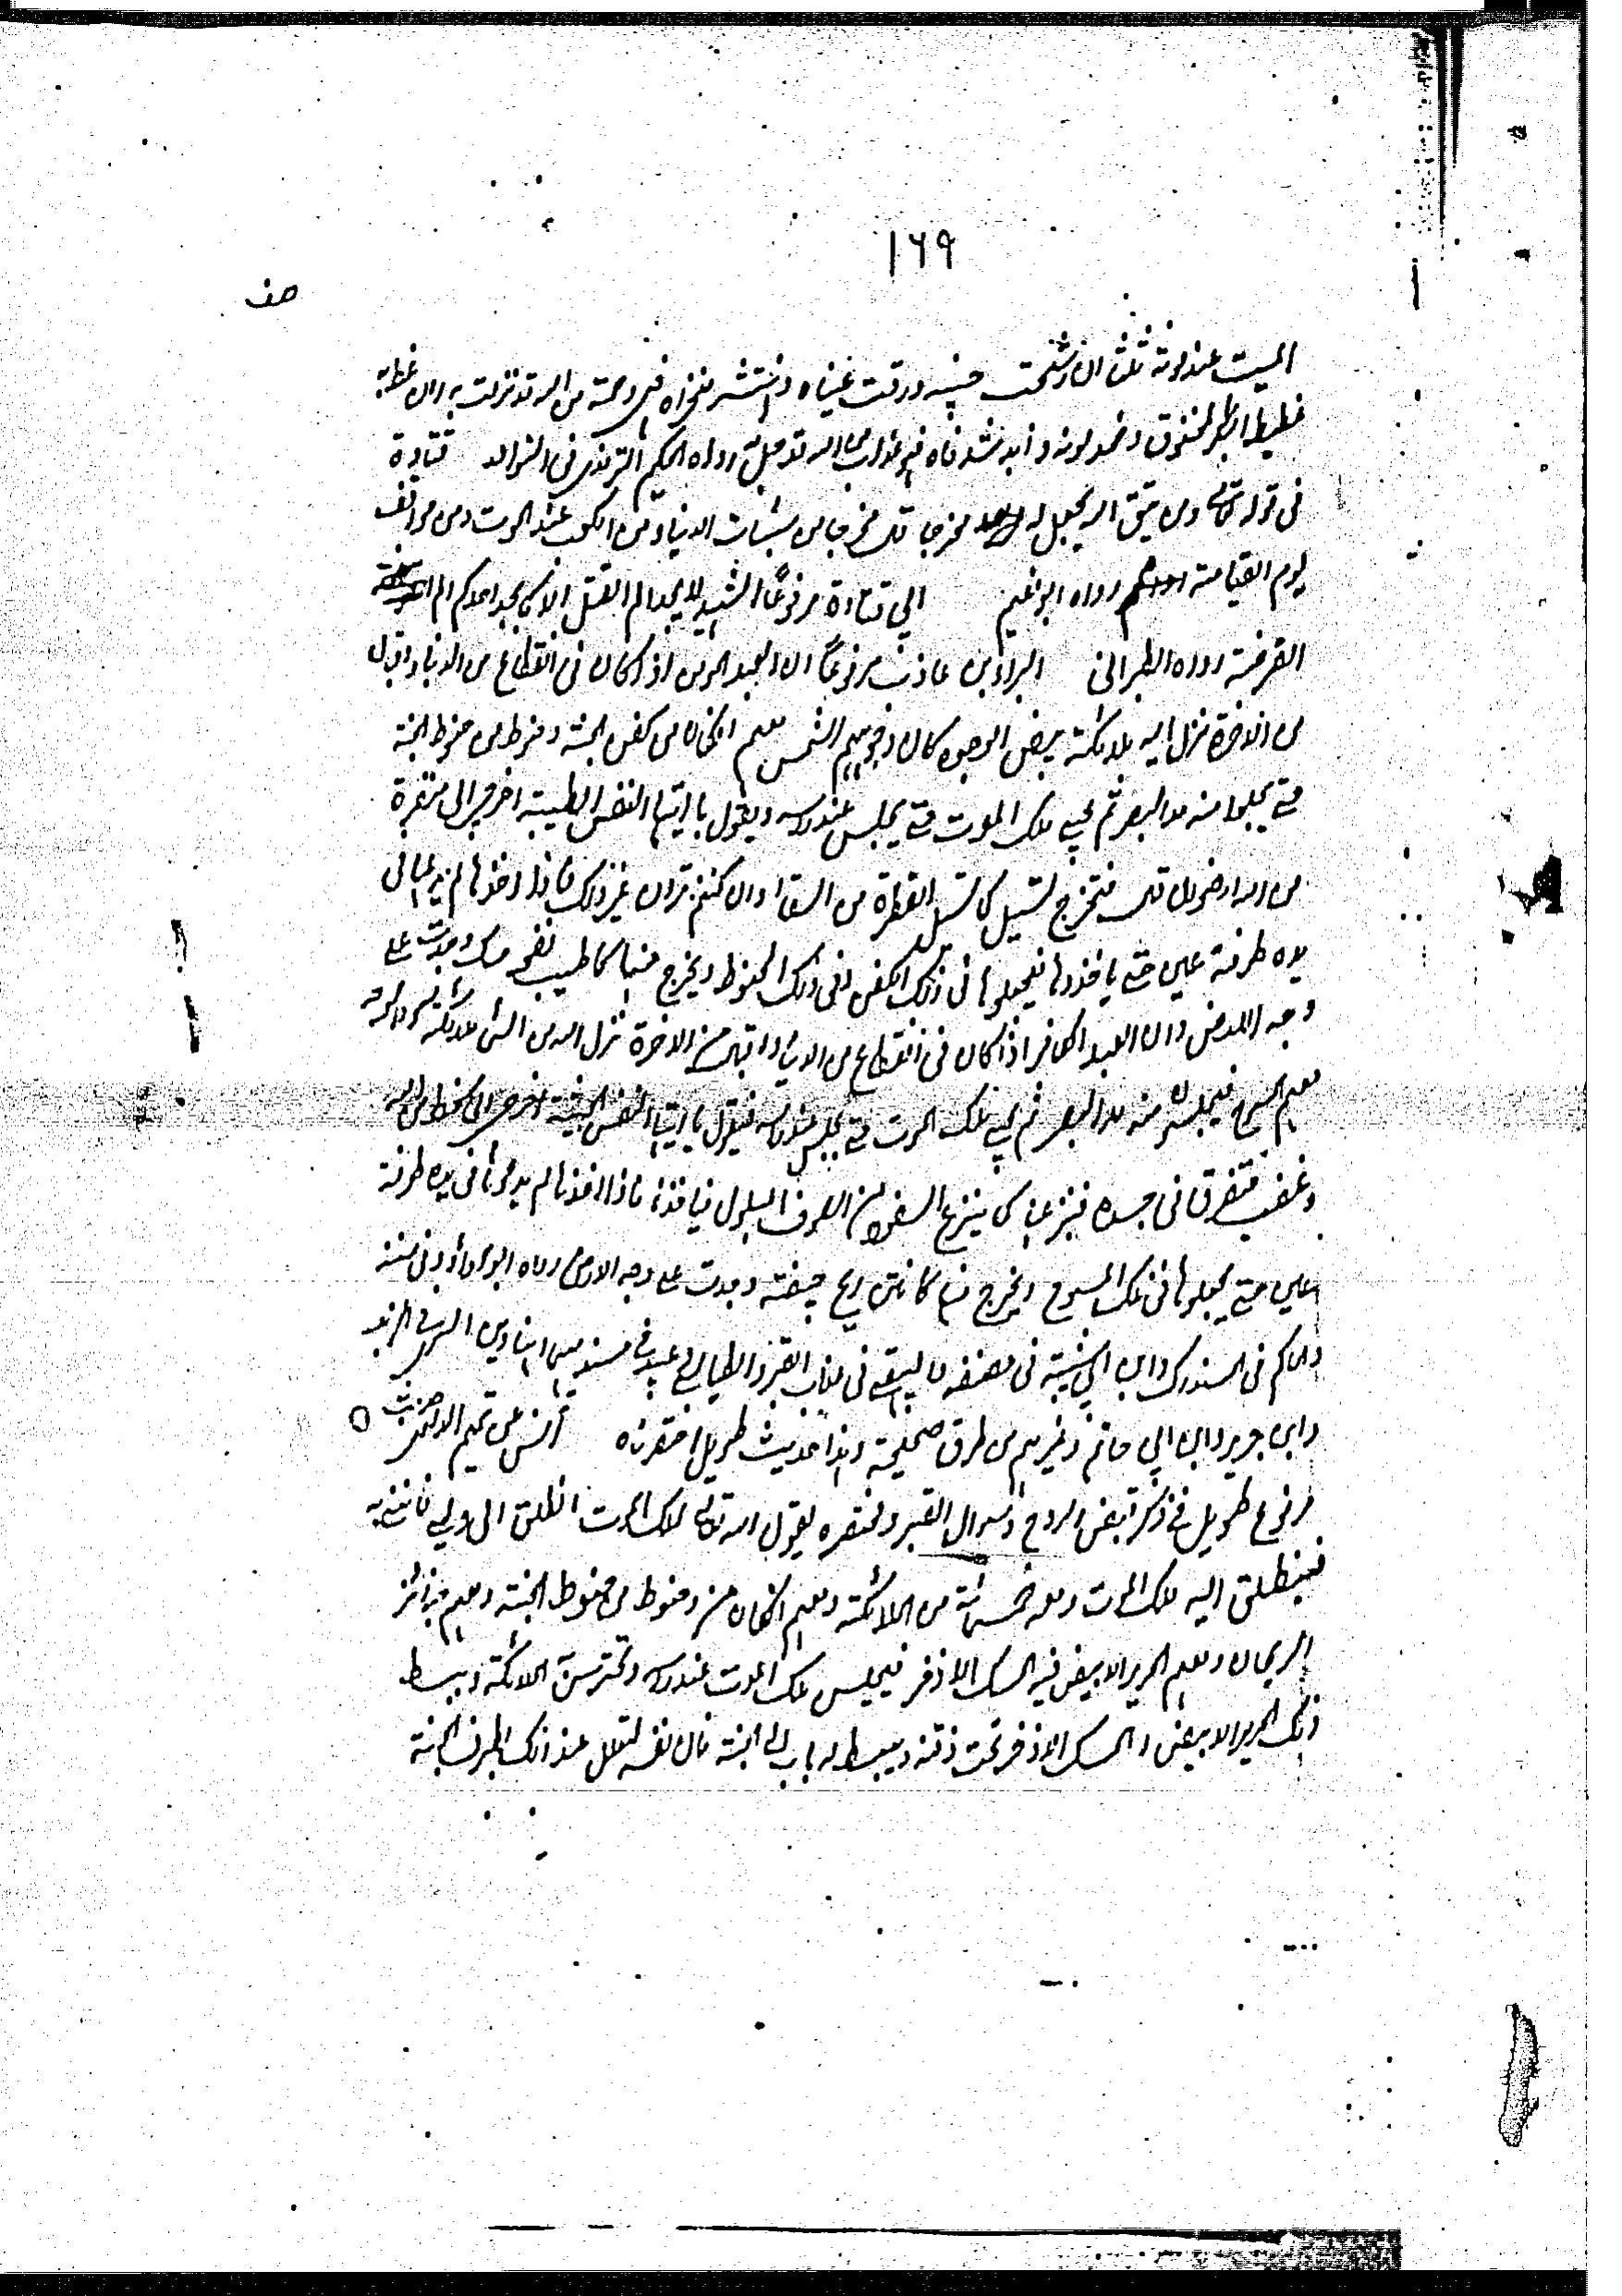 ١٦٩
صف
الميت عند موته ثلثا ان رشحت جبينه وذرفت عيناه وانتشر منخراه فهي رحمة من الله قد نزلت به وان غط
غطيط البكر المخنوق وخمد لونه وازبد شدقاه فهو عذاب من الله قد حل رواه الحكيم الترمذي في النوادر قتادة
في قوله تعالى ومن يتق الله يجعل له مخرجا قال مخرجا من شبهات الدنيا ومن الكرب عند الموت ومن مواقف
يوم القيامة رواه ابو نعيم ابي قتادة مرفوعا الشهيد لا يجد الم القتل الا كما يجد احدكم الم
القرصة رواه الطبراني البراء بن عازب مرفوعا ان العبد المومن اذا كان في انقطاع من الدنيا واقبال
من الاخرة نزل اليه ملائكة بيض الوجوه كان وجوههم الشمس معهم اكفان من كفن الجنة وحنوط من حنوط الجنة
حتى يجلسوا منه مد البصر ثم يجيء ملك الموت حتى يجلس عند راسه ويقول يا ايتها النفس الطيبة اخرجي الى مغفرة
من الله ورضوان قال فتخرج تسيل كما تسيل القطرة من السقا وان كنتم ترون غير ذلك فاذا اخذها لم يدعها في
يده طرفة عين حتى ياخذوها فيجعلوها في ذلك الكفن وفي ذلك الحنوط ويخرج منها كاطيب نفحة مسك وجدت على
وجه الارض وان العبد الكافر اذا كان في انقطاع من الدنيا واقبال من الاخرة نزل اليه من السماء ملائكة سود الوجوه
معهم المسوح فيجلسون منه مد البصر ثم يجيء ملك الموت حتى يجلس عند راسه فيقول يا ايتها النفس الخبيثة اخرجي الى سخط من الله
وغضب فتفرق في جسده فينزعها كما ينزع السفود من الصوف المبلول فياخذها فاذا اخذها لم يدعها في يده طرفة
عين حتى يجعلوها في تلك المسوح ويخرج منها كانتن ريح جيفة وجدت على وجه الارض رواه ابو داؤد في سننه
والحاكم في المستدرك وابن ابي شيبة في مصنفه والبيهقي في عذاب القبر والطيالسي وعبد في مسنديهما وهناد بن السري في الزهد
وابن جرير وابن ابي حاتم وغيرهم من طرق صحيحة وهذا حديث طويل اختصرناه انس عن تميم الداري حديث
مرفوع طويل في ذكر قبض الروح وسوال القبر ومختصره يقول الله تعالى لملك الموت انطلق الى وليي فاتني به
فينطلق اليه ملك الموت ومعه خمسمائة من الملائكة ومعهم اكفان من وحنوط من حنوط الجنة ومعهم ضبائر
الريحان ومعهم الحرير الابيض فيه المسك الاذفر فيجلس ملك الموت عند راسه وتحتوشه الملائكة ويبسط
ذلك الحرير الابيض والمسك الاذفر تحت ذقنه ويبسط له باب الى الجنة فان نفسه لتعلل عند ذلك بطرف الجنة